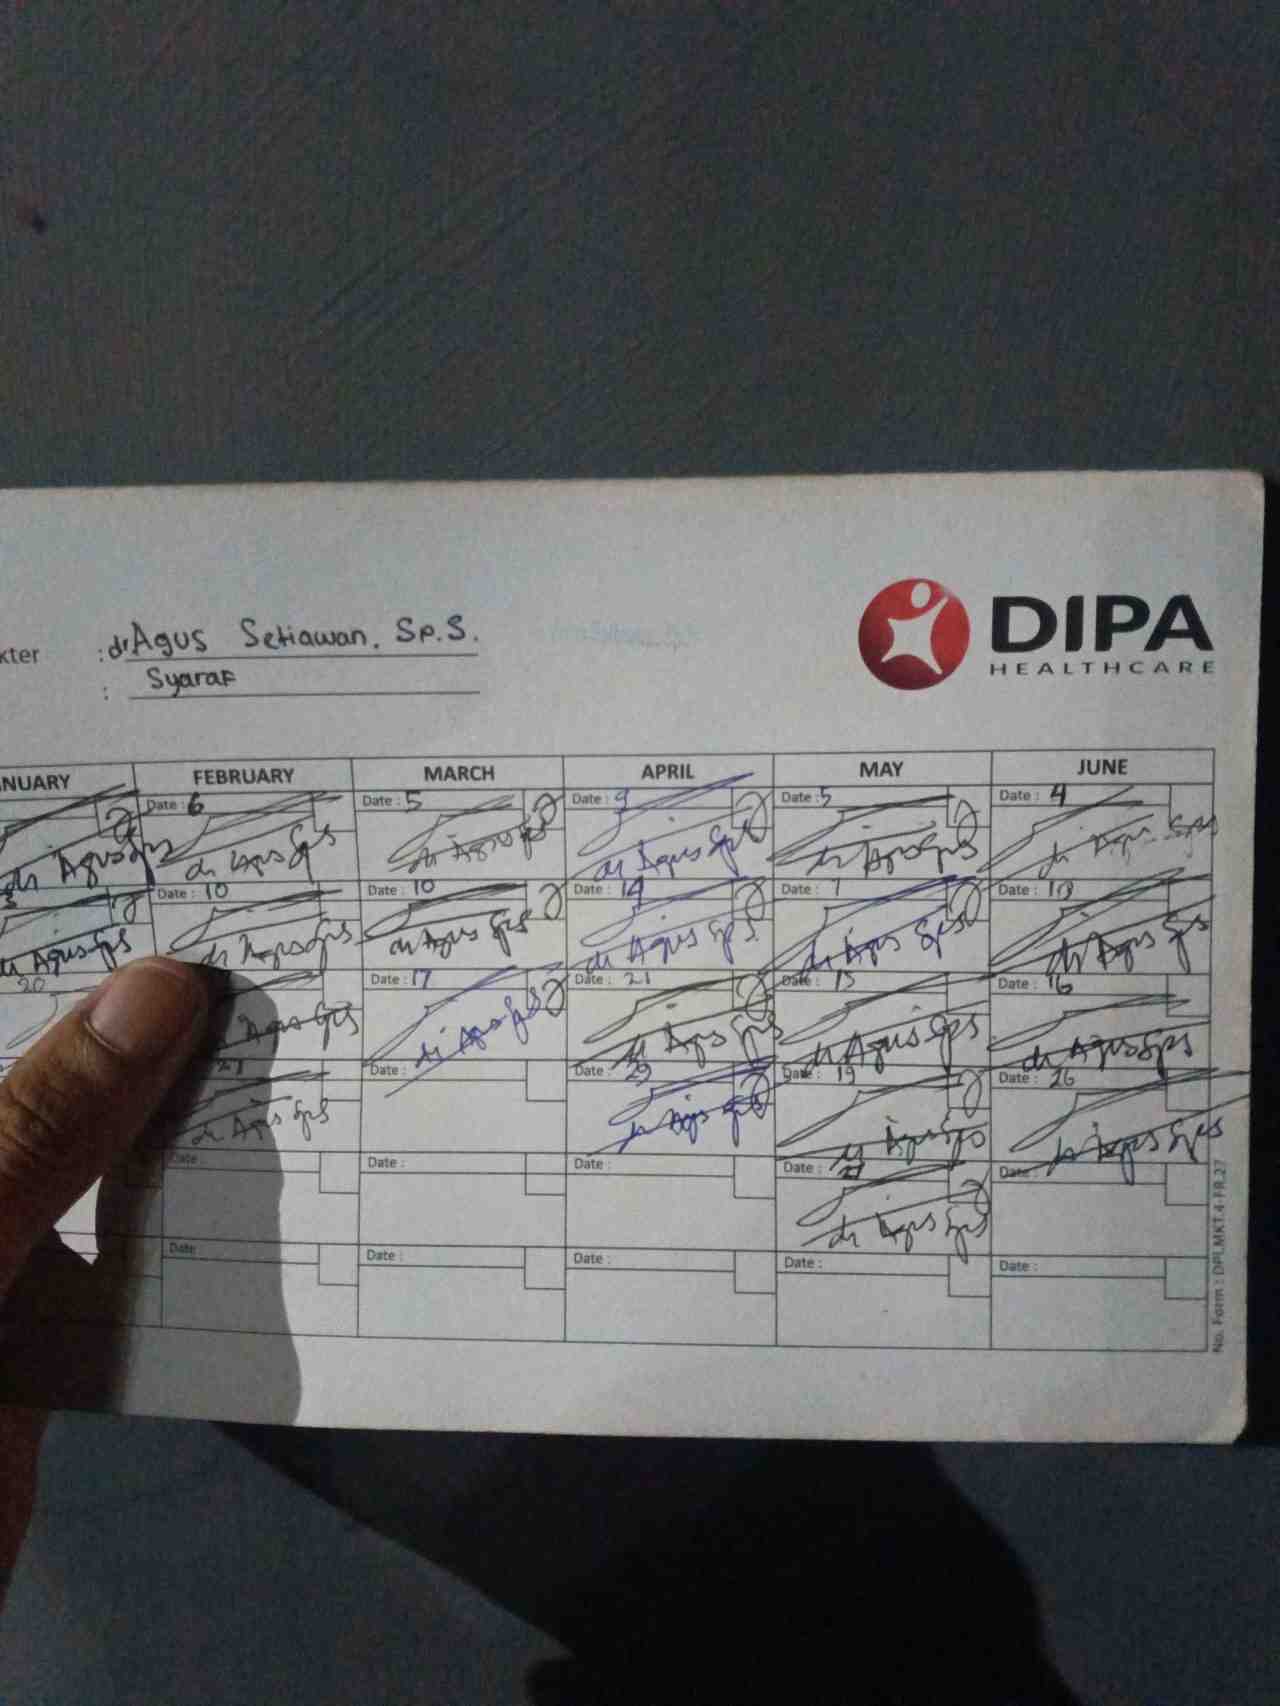 DIPA
HEALTHCARE
kter : dr Agus Setiawan. Sp.S.
: Syaraf
NUARY FEBRUARY MARCH APRIL MAY JUNE
Date : 6 Date : 5 Date : 9 Date : 5 Date : 4
dr Agus Sps dr Agus Sps dr Agus Sps dr Agus Sps dr Agus Sps dr Agus Sps
Date : 10 Date : 10 Date : 14 Date : 7 Date :
dr Agus Sps dr Agus Sps dr Agus Sps dr Agus Sps dr Agus Sps dr Agus Sps
20 Date : 17 Date : 21 Date : Date : 16
Agus Sps dr Agus Sps dr Agus Sps dr Agus Sps dr Agus Sps
Date : Date : Date : 19 Date : 26
dr Agus Sps dr Agus Sps dr Agus Sps dr Agus Sps
Date : Date : Date : Date : Date :
dr Agus Sps
Date Date : Date : Date : Date :
No. Form : DPLMKT.4-FR.27